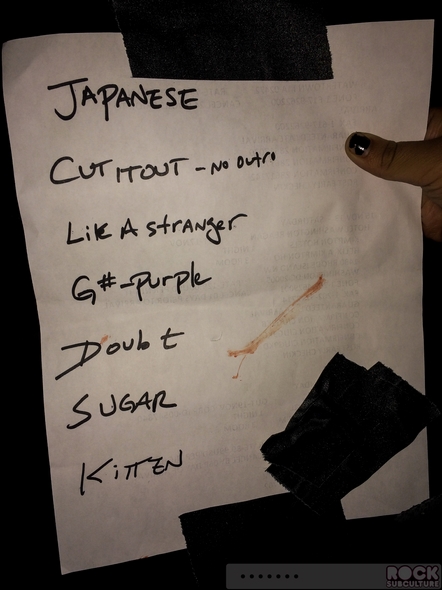 JAPANESE
CUT IT OUT - NO OUTRO
LiKE A stranger
G#-purple
Doubt
SUGAR
KiTTEN
ROCK
SUBCULTURE